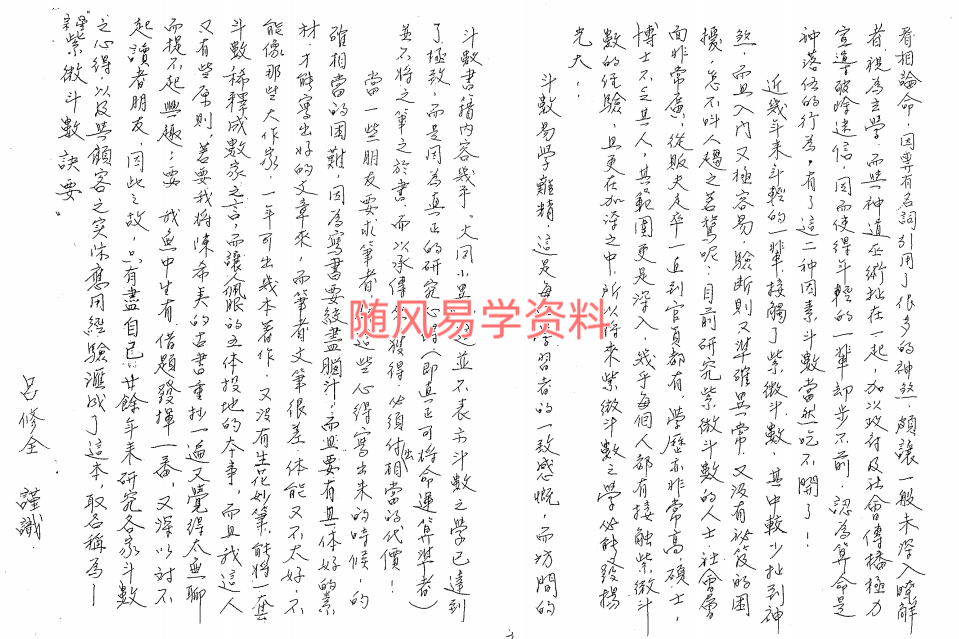 看相論命,因專有名詞引用了很多的神煞,頗讓一般未深入瞭解
者,視為玄學,而與神道巫術扯在一起,加以政府及社會傳播極力
宣導破除迷信,因而使得年輕的一輩却步不前,認為算命是
神落伍的行為,有了這二种因素,斗數當然吃不開了!
近幾年来年輕的一輩,接觸了紫微斗數,其中較少扯到神
煞,而且入門又極容易,驗斷則又準確異常,又沒有秘笈的困
擾,怎不叫人趨之若鶩呢?目前研究紫微斗數的人士,社會層
面非常廣,從販夫走卒一直到官員都有,學歷亦非常高,碩士,
博士不乏其人,其範圍更是深入,幾乎每個人都有接触紫微斗
數的經驗,且更在加深之中,所以将來紫微斗數之學必能發揚
光大!
斗數易學難精,這是每學習者的一致感慨,而坊間的
斗數書籍内容幾乎"大同小異"並不表示斗數之學已達到
了極致,而是因為真正的研究心得(即真正可將命運算準者)
並不將之筆之於書,而以承傳獲得,必須付出相當的代價!
當一些朋友要求筆者這些心得寫出来的時候,的
確相當的困難,因為寫書要絞盡腦汁,而且要有具体好的素
材,才能寫出好的文章來,而筆者文筆很差,体能又不太好,不
能像那些大作家,一年可出幾本著作,又沒有生花妙筆,能將一套
斗數稀釋成數家之言,而讓人佩服的五体投地的本事,而且我這人
又有些原則,若要我將陳希夷的古書重抄一遍,又覺得太無聊
而提不起興趣;要我無中生有,借題發揮一番,又深以对不
起讀者朋友,因此之故,只有盡自己廿餘年來研究各家斗數
之心得以及與顧客之实际應用經驗滙成了這本,取名稱為—
"紫微斗數訣要"
呂修全 謹識.
随风易学资料